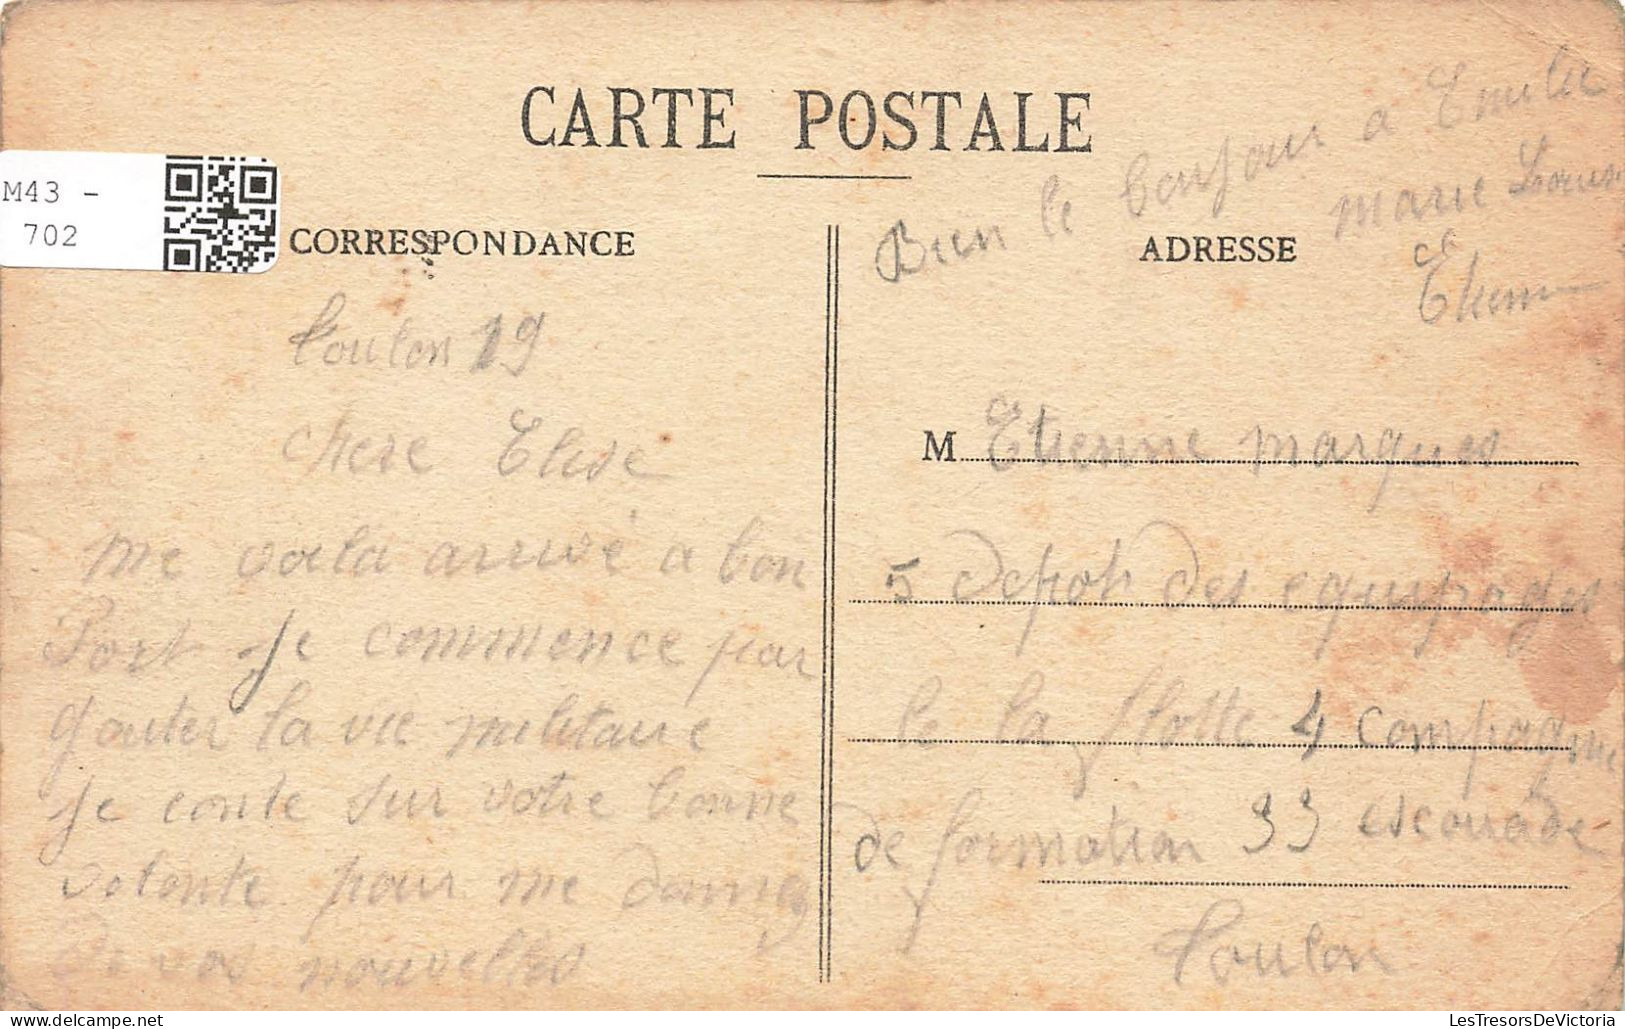 CARTE POSTALE
M43 -
702
CORRESPONDANCE
Toulon 19
chere Elise
me voila arrivé a bon
Port je commence par
gouter la vie militaire
je conte sur votre bonne
volonte pour me donner
De vos nouvelles
Bien le bonjour a Emilie
marie Louise
Etienne
ADRESSE
M Etienne marques
5 depot des equipages
de la flotte 4 compagnie
de formation 33 escouade
Toulon
LesTresorsDeVictoria